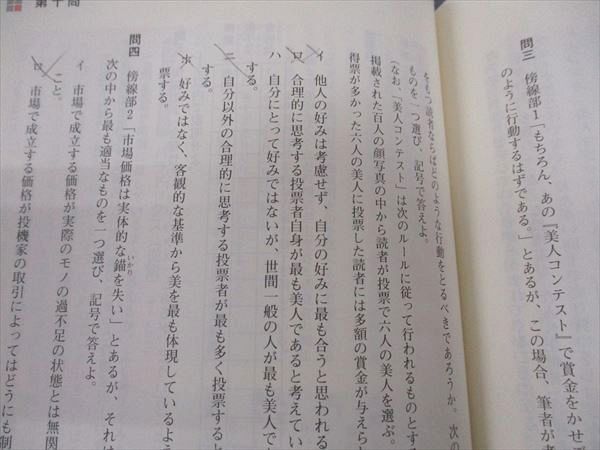 第十問
問三 傍線部1「もちろん、あの『美人コンテスト』で賞金をかせ
のように行動するはずである。」とあるが、この場合、筆者が考
をもつ読者ならばどのような行動をとるべきであろうか。次の
ものを一つ選び、記号で答えよ。
(なお、「美人コンテスト」は次のルールに従って行われるものとする
掲載された百人の顔写真の中から読者が投票で六人の美人を選ぶ。
得票が多かった六人の美人に投票した読者には多額の賞金が与えら
イ 他人の好みは考慮せず、自分の好みに最も合うと思われる
ロ 合理的に思考する投票者自身が最も美人であると考えてい
ハ 自分にとって好みではないが、世間一般の人が最も美人で
する。
ニ 自分以外の合理的に思考する投票者が最も多く投票すると
する。
ホ 好みではなく、客観的な基準から美を最も体現しているよう
票する。
問四 傍線部2「市場価格は実体的な錨を失い」とあるが、それは
いかり
次の中から最も適当なものを一つ選び、記号で答えよ。
イ 市場で成立する価格が実際のモノの過不足の状態とは無関
こと。
ロ 市場で成立する価格が投機家の取引によってはどうにも制